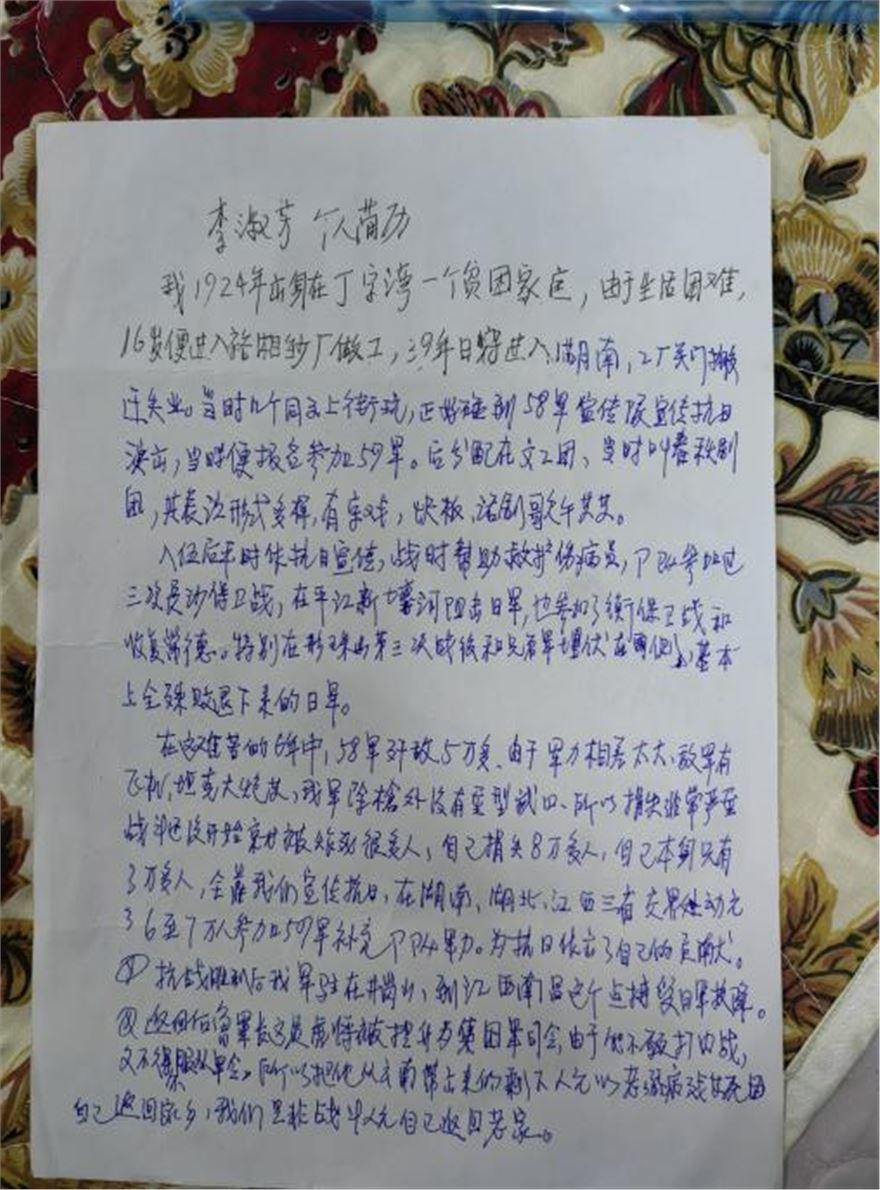 李淑芳 个人简历
我1924年出身在丁字湾一个贫困家庄，由于生活困难，
16岁便进入裕湘纱厂做工，39年日寇进入湖南，工厂关门搬
迁失业。当时几个同去上街玩，正好碰到58军宣传队宣传抗日
演出，当时便报名参加58军。后分配在文工团、当时叫春秋剧
团，其表演形式多样，有京戏，快板，话剧歌午等等。
入伍后平时作抗日宣传，战时帮助救护伤病员，参加过
三次长沙保卫战，在平江新墙河阻击日军，也参加了衡保卫战和
收复常德。特别在影珠山第三次战役和兄弟军埋伏在两侧山基本
上全殊败退下来的日军。
在这艰苦的6年中，58军歼敌5万多、由于军力相差太大、敌军有
飞机，坦克大炮等，我军除枪外没有重型武口、所以损失非常严重
战斗还没开始就被炸死很多人，自己损失8万多人，自己本身只有
3万多人，全靠我们宣传抗日，在湖南、湖北、江西三省交界处动元
36至7万人参加58军补充军力。为抗日作出了自己的贡献。
① 抗战胜利后我军驻在井岗山，到江西南昌这个点接受日军投降。
② 返回后鲁军长这员虎将被提升为集团军司令，由于他不愿打内战，
又不得服从军令。所以把他从云南带出来的剩下人元以老弱病残等元因
自己返回家乡，我们是非战斗人元自己返回老家。